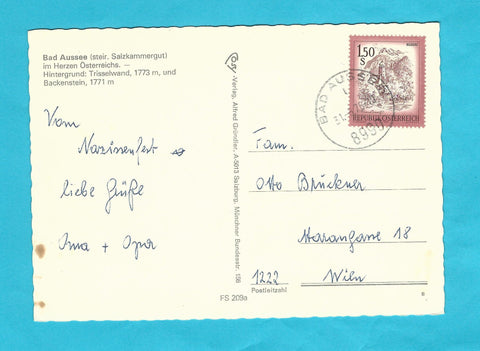 Bad Aussee (steir. Salzkammergut)
im Herzen Österreichs. —
Hintergrund: Trisselwand, 1773 m, und
Backenstein, 1771 m
Vom
Narzissenfest
liebe Grüße
Oma + Opa
Cosy-Verlag, Alfred Gründler, A-5013 Salzburg, Münchner Bundesstr. 156
FS 209a
1,50
S
REPUBLIK ÖSTERREICH
BAD AUSSEE
8990
Fam.
Otto Brückner
18
1222 Wien
Postleitzahl